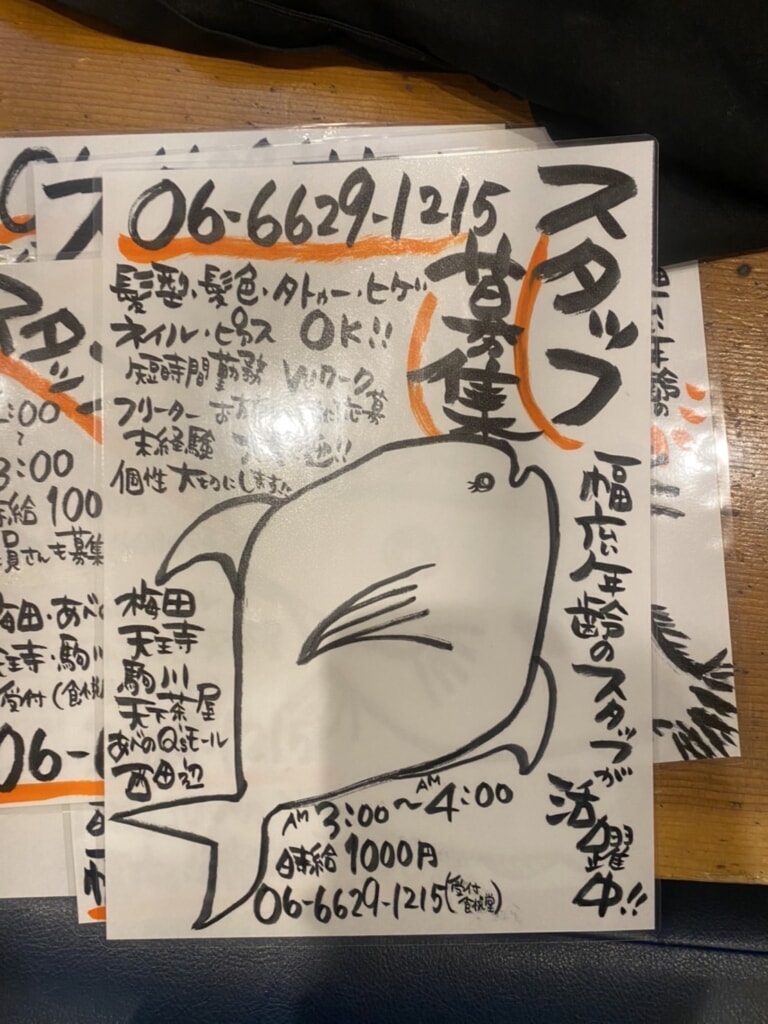 スタッフ
募集
06-6629-1215
髪型・髪色・タトゥー・ヒゲ
ネイル・ピアス OK!!
短時間勤務 Wワーク
フリーター 応募
未経験
個性大切にします!!
幅広い年齢のスタッフが
活躍中!!
梅田
天王寺
駒川
天下茶屋
あべのQ'sモール
西田辺
AM3:00〜AM4:00
時給1000円
06-6629-1215(受付食悦堂)
:00
3:00
給100
員さんも募集
梅田・あべの
王寺・駒川
受付(食悦
06-6
年齢の